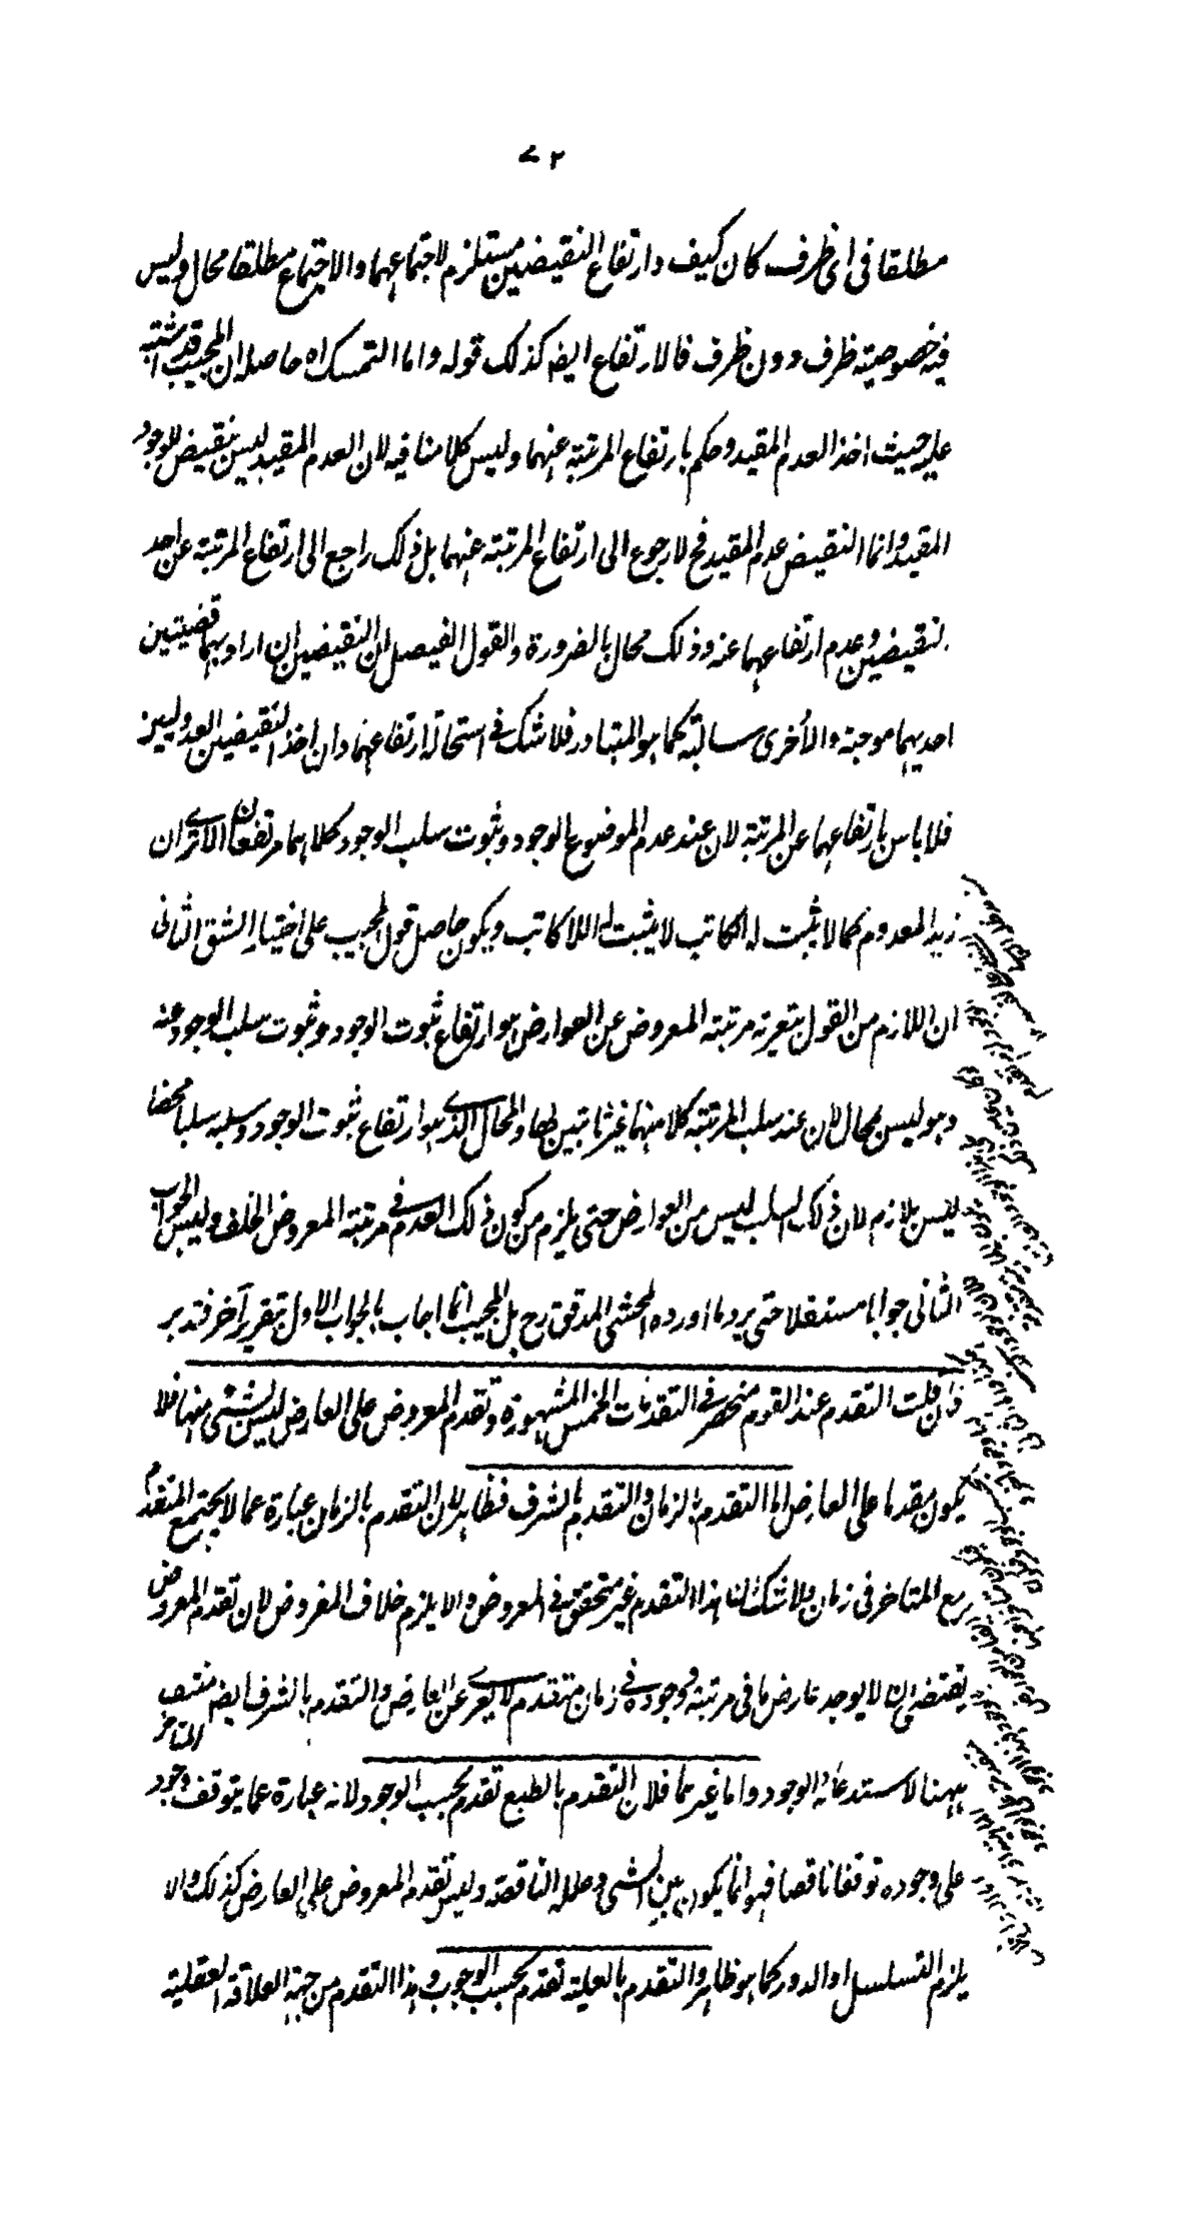 ٧٢
مطلقا فى اى ظرف كان كيف وارتفاع النقيضين مستلزم لاجتماعهما والاجتماع مطلقا محال وليس
فيه خصوصية ظرف دون ظرف فالارتفاع ايضا كذلك قوله واما التمسك اه حاصله ان المجيب قد اشتبه
عليه حيث اخذ العدم المقيد وحكم بارتفاع المرتبة عنهما وليس كلامنا فيه لان العدم المقيد ليس بنقيض للوجود
المقيد وانما النقيض عدم المقيد فح لا رجوع الى ارتفاع المرتبة عنهما بل ذلك راجع الى ارتفاع المرتبة عن احد
لنقيضين وعدم ارتفاعهما عنه وذلك محال بالضرورة والقول الفيصل ان النقيضين ان اراد بهما قضيتين
احديهما موجبة والأخرى سالبة كما هو المتبادر فلا شك فى استحالة ارتفاعهما وان اخذ النقيضين العدوليين
فلا باس بارتفاعهما عن المرتبة لان عند عدم الموضوع الوجود وثبوت سلب الوجود كلاهما مرتفعان الا ترى ان
زيد المعدوم كما لا يثبت له الكاتب لا يثبت له اللاكاتب ويكون حاصل قول المجيب على اختيار الشق الثانى
ان اللازم من القول بتعرية مرتبة المعروض عن العوارض هو ارتفاع ثبوت الوجود وثبوت سلب الوجود عنه
وهو ليس بمحال لان عند سلب المرتبة كلا منهما غير ثابتين لها والمحال الذى هو ارتفاع ثبوت الوجود وسلبه سلبا محضا
ليس بلازم لان ذلك السلب ليس من العوارض حتى يلزم من كون ذلك العدم فى مرتبة المعروض الخلف وليس الجواب
الثانى جوابا مستقلا حتى يرد ما اورده المحشى المدقق رح بل المجيب انما اجاب بالجواب الاول بتقرير آخر فتدبر
فان قلت التقدم عند القوم منحصر فى التقدمات الخمس المشهورة وتقدم المعروض على العارض ليس بشئ منها فلا
يكون مقدما على العارض اما التقدم بالزمان والتقدم بالشرف فظاهر لان التقدم بالزمان عبارة عما لا يجتمع المتقدم
مع المتاخر فى زمان ولا شك ان هذا التقدم غير متحقق فى المعروض والا يلزم خلاف المفروض لان تقدم المعروض
يقتضى ان لا يوجد عارض ما فى مرتبة وجوده فى زمان متقدم لا يعرى عن العارض والتقدم بالشرف ايضا منتف
ههنا لاستدعائه الوجود واما غيرهما فلان التقدم بالطبع تقدم بحسب الوجود لانه عبارة عما يتوقف وجود المتاخر
على وجوده توقفا ناقصا فهو انما يكون بين الشئ وعلله الناقصة وليس تقدم المعروض على العارض كذلك والا
يلزم التسلسل او الدور كما هو ظاهر والتقدم بالعلية تقدم بحسب الوجوب وهذا التقدم من جهة العلاقة العقلية